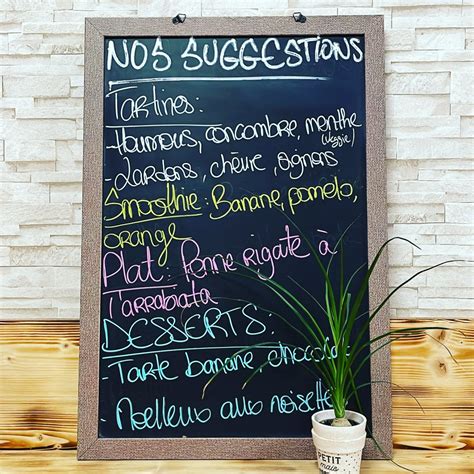 NOS SUGGESTIONS
Tartines:
-Houmous, concombre, menthe
(veggie)
-Lardons, chèvre, oignons
Smoothie: Banane, pomelo,
orange
Plat: Penne rigate à
l'arrabiata
DESSERTS:
-Tarte banane chocolat
-Moelleux aux noisettes
PETIT
mais